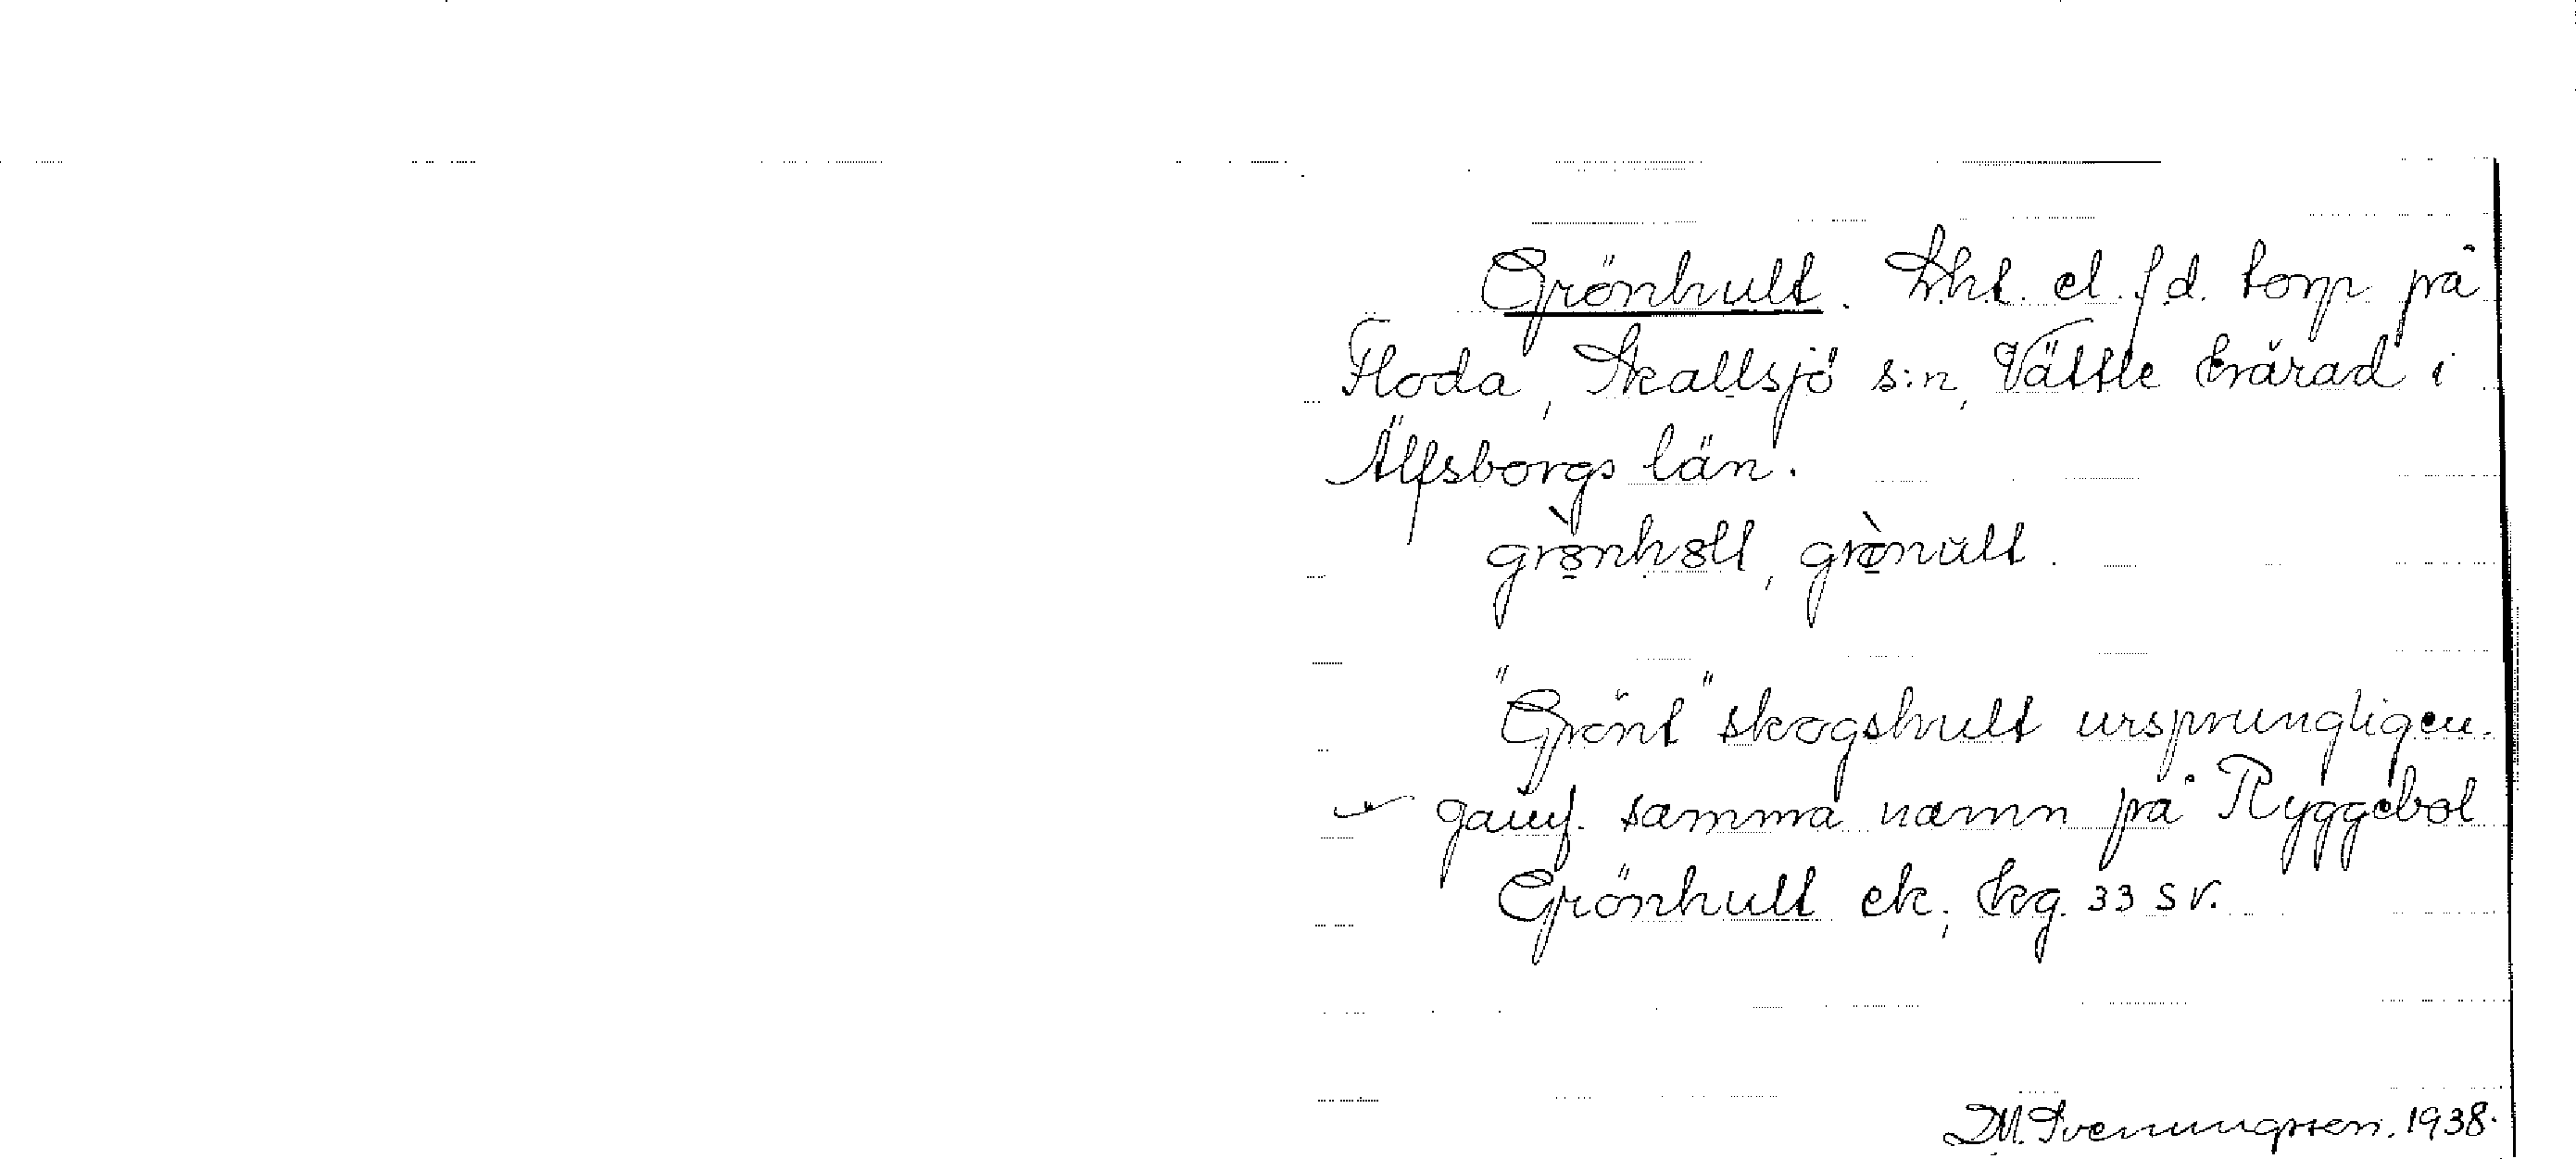 Grönhult. Lht. el. f.d. torp på
Floda, Skallsjö s:n, Vättle härad i
Älfsborgs län.
grònholt, grønult.
"Grönt" skogshult ursprungligen.
Jämf. samma namn på Ryggebol
Grönhult ek. kg. 33 SV.
D.M. Svenungsson. 1938.